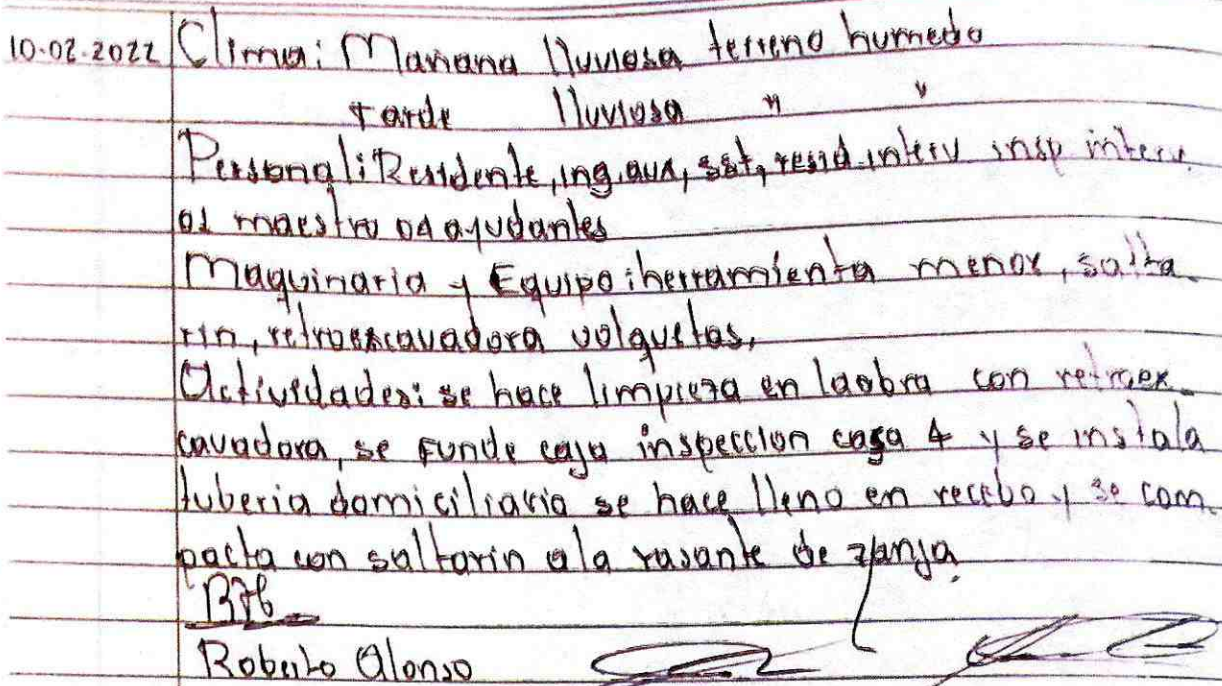 10-02-2022 Clima: Mañana lluviosa terreno humedo
tarde lluviosa " "
Personal: Residente, ing. aux, sst, resid. interv insp interv
01 maestro 04 ayudantes
Maquinaria y Equipo: herramienta menor, salta
rin, retroexcavadora volquetas,
Actividades: se hace limpieza en laobra con retroex
cavadora, se funde caja inspeccion casa 4 y se instala
tuberia domiciliaria se hace lleno en recebo y se com
pacta con saltarin ala rasante de zanja
Roberto Alonso